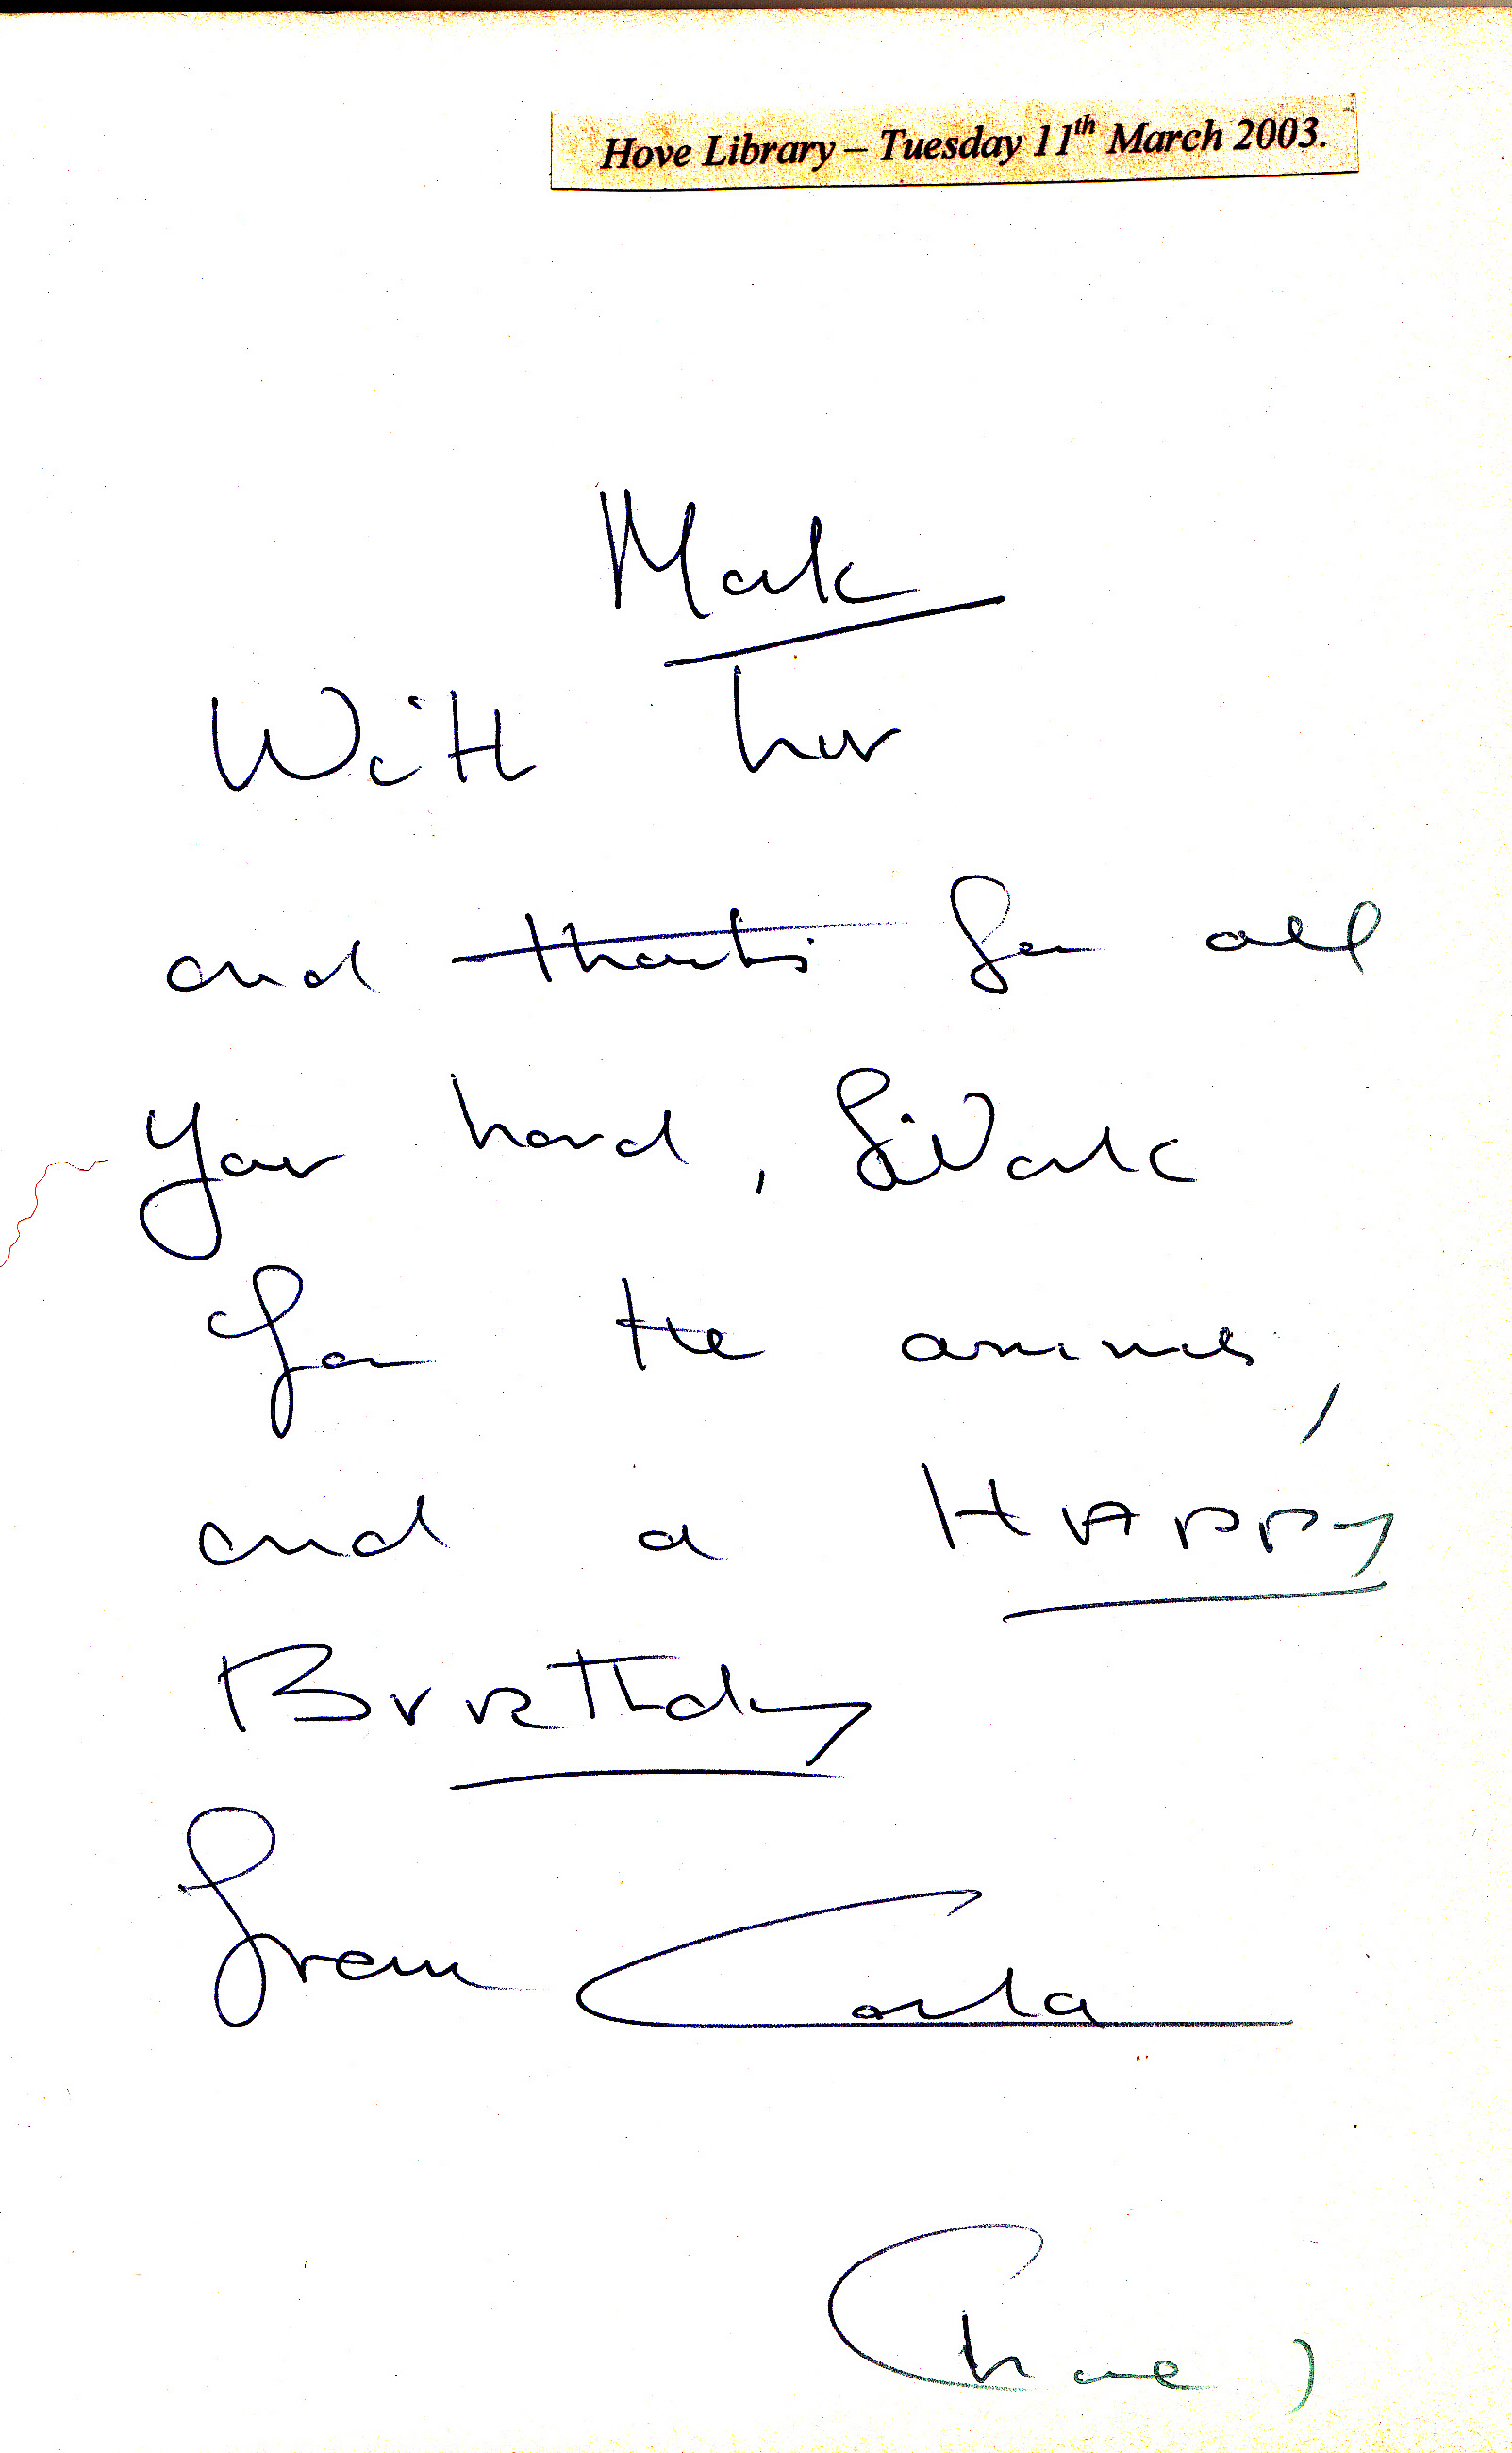 Hove Library – Tuesday 11th March 2003.
Mark
With
and thanks for all
your hard, work
for the animals,
and a HAPPY
BIRTHday
from Carla